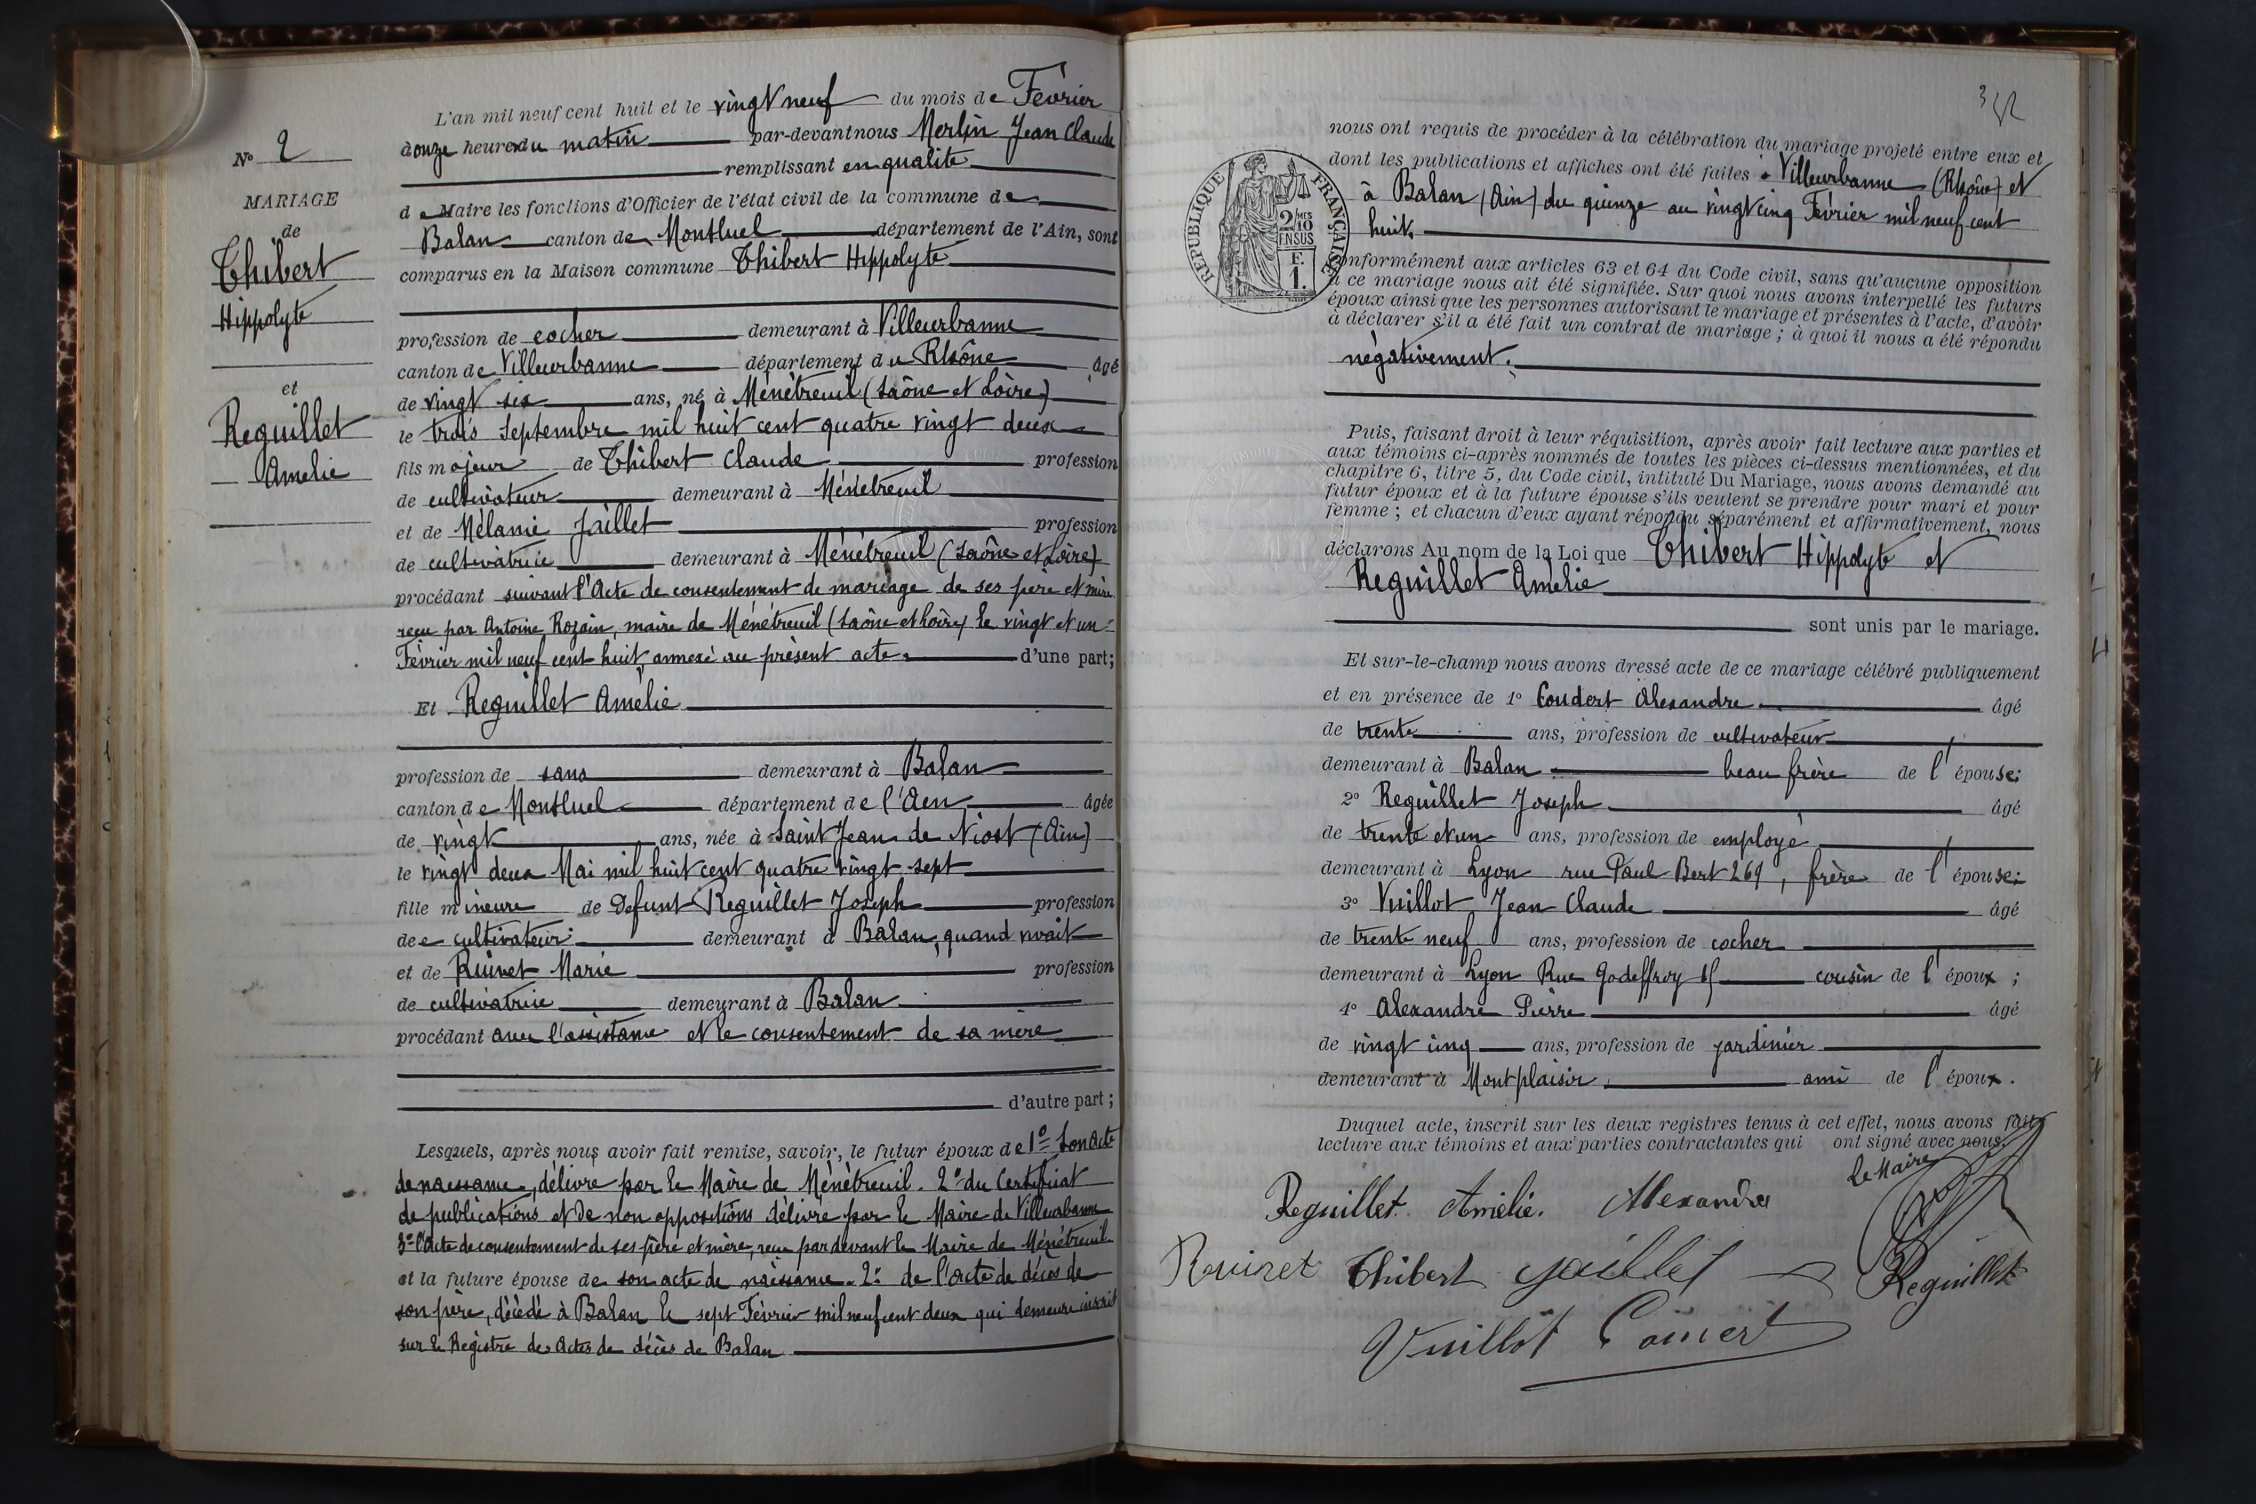 L'an mil neuf cent huit et le vingt neuf du mois de Février
à onze heures du matin par-devant nous Merlin Jean Claude
remplissant en qualité
de Maire les fonctions d'Officier de l'état civil de la commune de
Balan canton de Montluel département de l'Ain, sont
comparus en la Maison commune Thibert Hippolyte
profession de cocher demeurant à Villeurbanne
canton de Villeurbanne département du Rhône âgé
de vingt six ans, né à Ménétreuil (Saône et Loire)
le trois Septembre mil huit cent quatre vingt deux
fils majeur de Thibert Claude profession
de cultivateur demeurant à Ménétreuil
et de Mélanie Jaillet profession
de cultivatrice demeurant à Ménétreuil (Saône et Loire)
procédant suivant l'Acte de consentement de mariage de ses père et mère
reçu par Antoine Rozain, maire de Ménétreuil (Saône et Loire) le vingt et un
Février mil neuf cent huit annexé au présent acte. d'une part;
Et Reguillet Amélie
profession de sans demeurant à Balan
canton de Montluel département de l'Ain âgée
de vingt ans, née à Saint Jean de Niost (Ain)
le vingt deux Mai mil huit cent quatre vingt sept
fille mineure de Defunt Reguillet Joseph profession
de cultivateur demeurant à Balan, quand vivait
et de Ruivet Marie profession
de cultivatrice demeurant à Balan
procédant avec l'assistance et le consentement de sa mère
d'autre part;
Lesquels, après nous avoir fait remise, savoir, le futur époux de 1° Son acte
de naissance, délivré par le Maire de Ménétreuil. 2° du Certificat
de publications et de non oppositions délivré par le Maire de Villeurbanne
3° l'Acte de consentement de ses père et mère, reçu par devant le Maire de Ménétreuil
et la future épouse de son acte de naissance. 2° de l'acte de décès de
son père, décédé à Balan le sept Février mil neuf cent deux qui demeure inscrit
sur le Registre des Actes de décès de Balan
N° 2
MARIAGE
de
Thibert
Hippolyte
et
Reguillet
Amelie
nous ont requis de procéder à la célébration du mariage projeté entre eux et
dont les publications et affiches ont été faites à Villeurbanne (Rhône) et
à Balan (Ain) du quinze au vingt cinq Février mil neuf cent
huit.
RÉPUBLIQUE FRANÇAISE
2/10 EN SUS
F.
1.
Conformément aux articles 63 et 64 du Code civil, sans qu'aucune opposition
à ce mariage nous ait été signifiée. Sur quoi nous avons interpellé les futurs
époux ainsi que les personnes autorisant le mariage et présentes à l'acte, d'avoir
à déclarer s'il a été fait un contrat de mariage; à quoi il nous a été répondu
négativement.
Puis, faisant droit à leur réquisition, après avoir fait lecture aux parties et
aux témoins ci-après nommés de toutes les pièces ci-dessus mentionnées, et du
chapitre 6, titre 5, du Code civil, intitulé Du Mariage, nous avons demandé au
futur époux et à la future épouse s'ils veulent se prendre pour mari et pour
femme; et chacun d'eux ayant répondu séparément et affirmativement, nous
déclarons Au nom de la Loi que Thibert Hippolyte et
Reguillet Amélie
sont unis par le mariage.
Et sur-le-champ nous avons dressé acte de ce mariage célébré publiquement
et en présence de 1° Coudert Alexandre âgé
de trente ans, profession de cultivateur
demeurant à Balan beau frère de l'épouse;
2° Reguillet Joseph âgé
de trente et un ans, profession de employé
demeurant à Lyon rue Paul Bert 269, frère de l'épouse;
3° Vuillot Jean Claude âgé
de trente neuf ans, profession de cocher
demeurant à Lyon Rue Godeffroy cousin de l'époux;
4° Alexandre Pierre âgé
de vingt cinq ans, profession de jardinier
demeurant à Montplaisir ami de l'époux.
Duquel acte, inscrit sur les deux registres tenus à cet effet, nous avons fait
lecture aux témoins et aux parties contractantes qui ont signé avec nous.
Le Maire
Reguillet Amélie. Alexandre
Ruivet Thibert Jaillet Reguillet
Vuillot